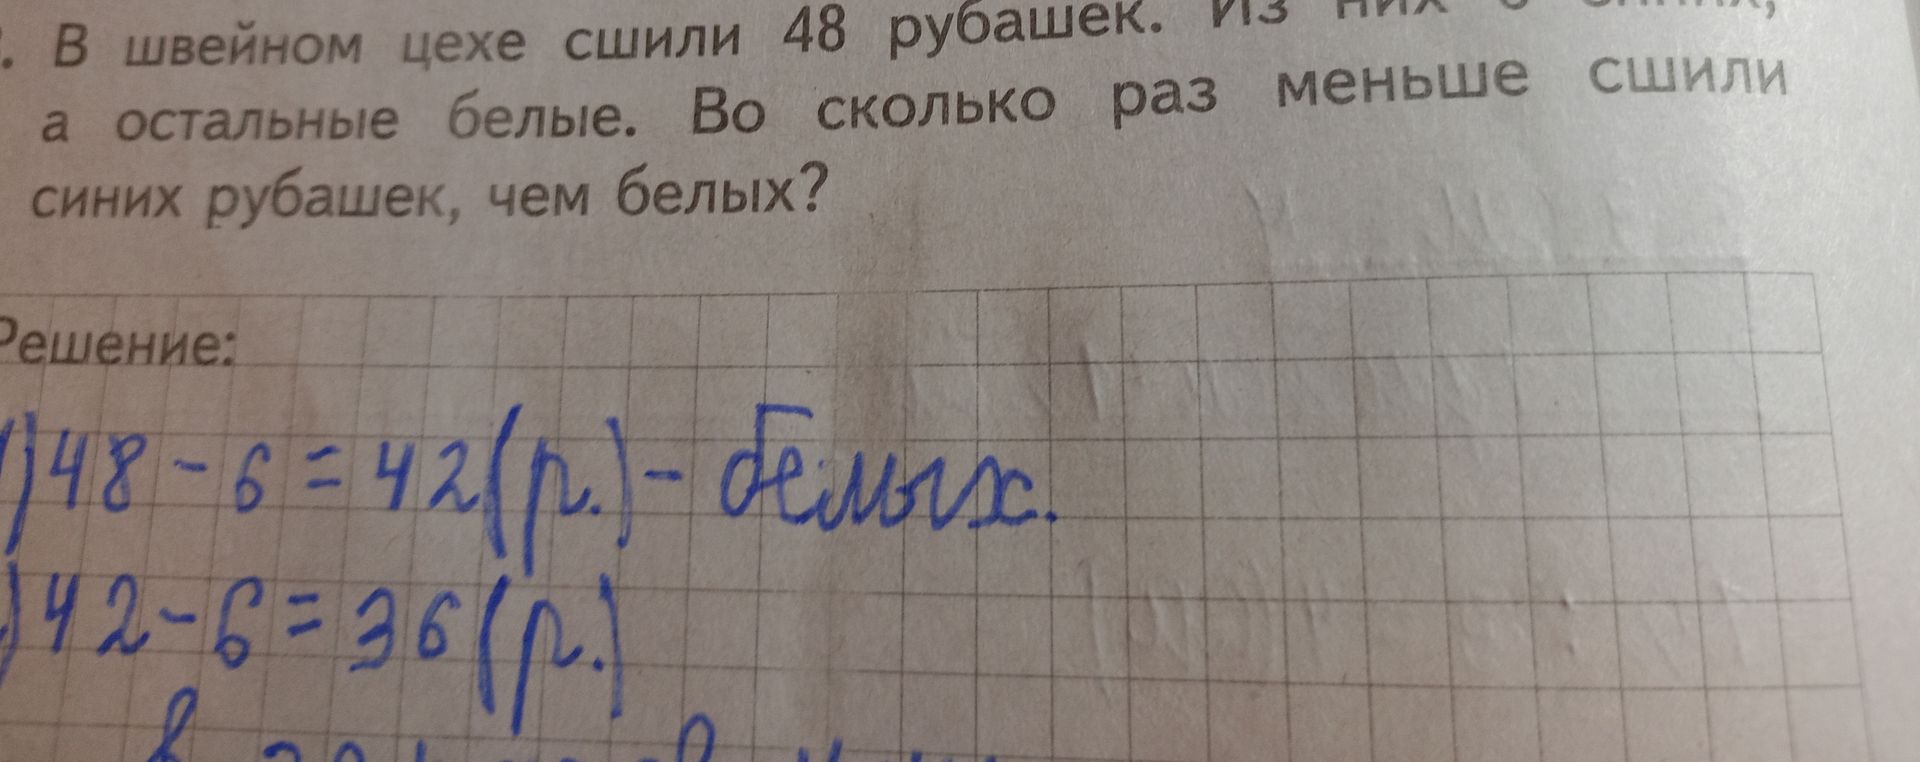 . В швейном цехе сшили 48 рубашек. Из них
а остальные белые. Во сколько раз меньше сшили
синих рубашек, чем белых?
Решение:
1) 48 - 6 = 42 (р.) - белых.
) 42 - 6 = 36 (р.)